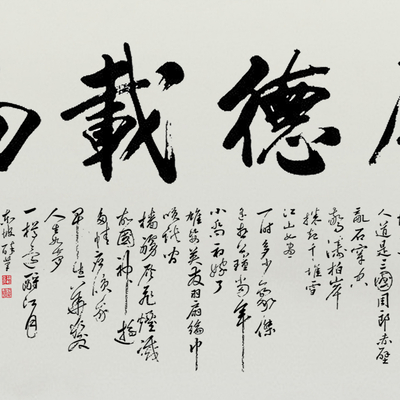 德載
人道是三國周郎赤壁
亂石穿空
驚濤拍岸
捲起千堆雪
江山如畫
一時多少豪傑
遙想公瑾當年
小喬初嫁了
雄姿英發羽扇綸巾
談笑間
檣櫓灰飛煙滅
故國神遊
多情應笑我
早生華髮
人生如夢
一樽還酹江月
東坡